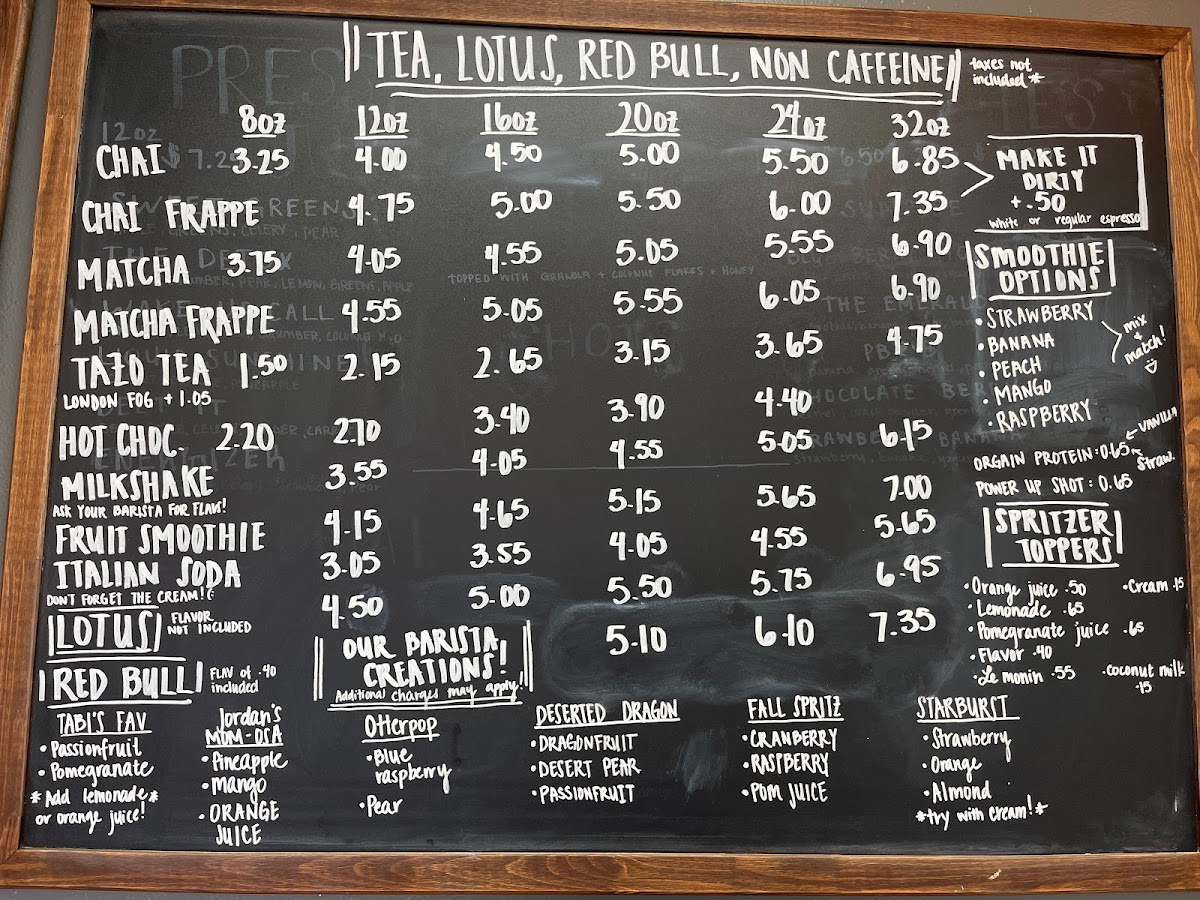 TEA, LOTUS, RED BULL, NON CAFFEINE
taxes not
included*
8oz 12oz 16oz 20oz 24oz 32oz
CHAI 3.25 4.00 4.50 5.00 5.50 6.85
CHAI FRAPPE 4.75 5.00 5.50 6.00 7.35
MATCHA 3.75 4.05 4.55 5.05 5.55 6.90
MATCHA FRAPPE 4.55 5.05 5.55 6.05 6.90
TAZO TEA 1.50 2.15 2.65 3.15 3.65 4.75
LONDON FOG + 1.05
HOT CHOC. 2.20 2.70 3.40 3.90 4.40
MILKSHAKE 3.55 4.05 4.55 5.05 6.15
ASK YOUR BARISTA FOR FLAVS!
FRUIT SMOOTHIE 4.15 4.65 5.15 5.65 7.00
ITALIAN SODA 3.05 3.55 4.05 4.55 5.65
DON'T FORGET THE CREAM! (:
LOTUS FLAVOR 4.50 5.00 5.50 5.75 6.95
NOT INCLUDED
RED BULL FLAV of .40 5.10 6.10 7.35
included
MAKE IT
DIRTY
+.50
white or regular espresso
SMOOTHIE
OPTIONS
• STRAWBERRY
• BANANA
• PEACH
• MANGO
• RASPBERRY
mix
+
match!
ORGAIN PROTEIN: 0.65
VANILLA
Straw.
POWER UP SHOT: 0.65
SPRITZER
TOPPERS
• Orange juice .50 • Cream .15
• Lemonade .65
• Pomegranate juice .65
• Flavor .40
• Le monin .55 • coconut milk
.15
OUR BARISTA
CREATIONS!
Additional charges may apply!
TABI'S FAV
• Passionfruit
• Pomegranate
* Add lemonade *
or orange juice!
Jordan's
MOM-OSA
• Pineapple
• mango
• ORANGE
JUICE
Otterpop
• Blue
raspberry
• Pear
DESERTED DRAGON
• DRAGONFRUIT
• DESERT PEAR
• PASSIONFRUIT
FALL SPRITZ
• CRANBERRY
• RASPBERRY
• POM JUICE
STARBURST
• Strawberry
• Orange
• Almond
*try with cream!*